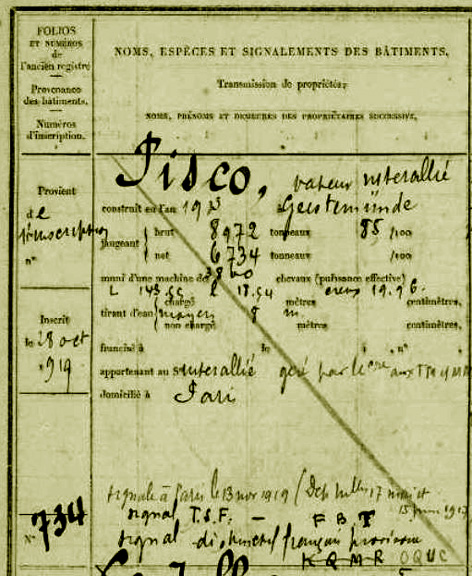 FOLIOS
ET NUMÉROS
de
l'ancien registre
Provenance
des bâtiments.
Numéros
d'inscription.
NOMS, ESPÈCES ET SIGNALEMENTS DES BÂTIMENTS.
Transmission de propriétés;
NOMS, PRÉNOMS ET DEMEURES DES PROPRIÉTAIRES SUCCESSIVE,
Pisco, vapeur interallié
Provient
de
l'inscription
n°
construit en l'an 1913 à Geestemünde
jaugeant
brut 8972 tonneaux 85 /100
net 6734 tonneaux /100
muni d'une machine de 3800 chevaux (puissance effective)
L 143.56 l 18.54 mètres creux 19.96 centimètres,
tirant d'eau
chargé
moyen 8 m.
non chargé mètres centimètres,
Inscrit
le 28 oct
1919
francisé à le n°
appartenant au S interallié géré par le aux
domicilié à Paris
N° 734
signalé à Paris le 13 nov 1919 (Dep 17 mai et
15 juin 1917
signal T.S.F. — F B T
signal distinctif français provisoire
K Q M R OQUC